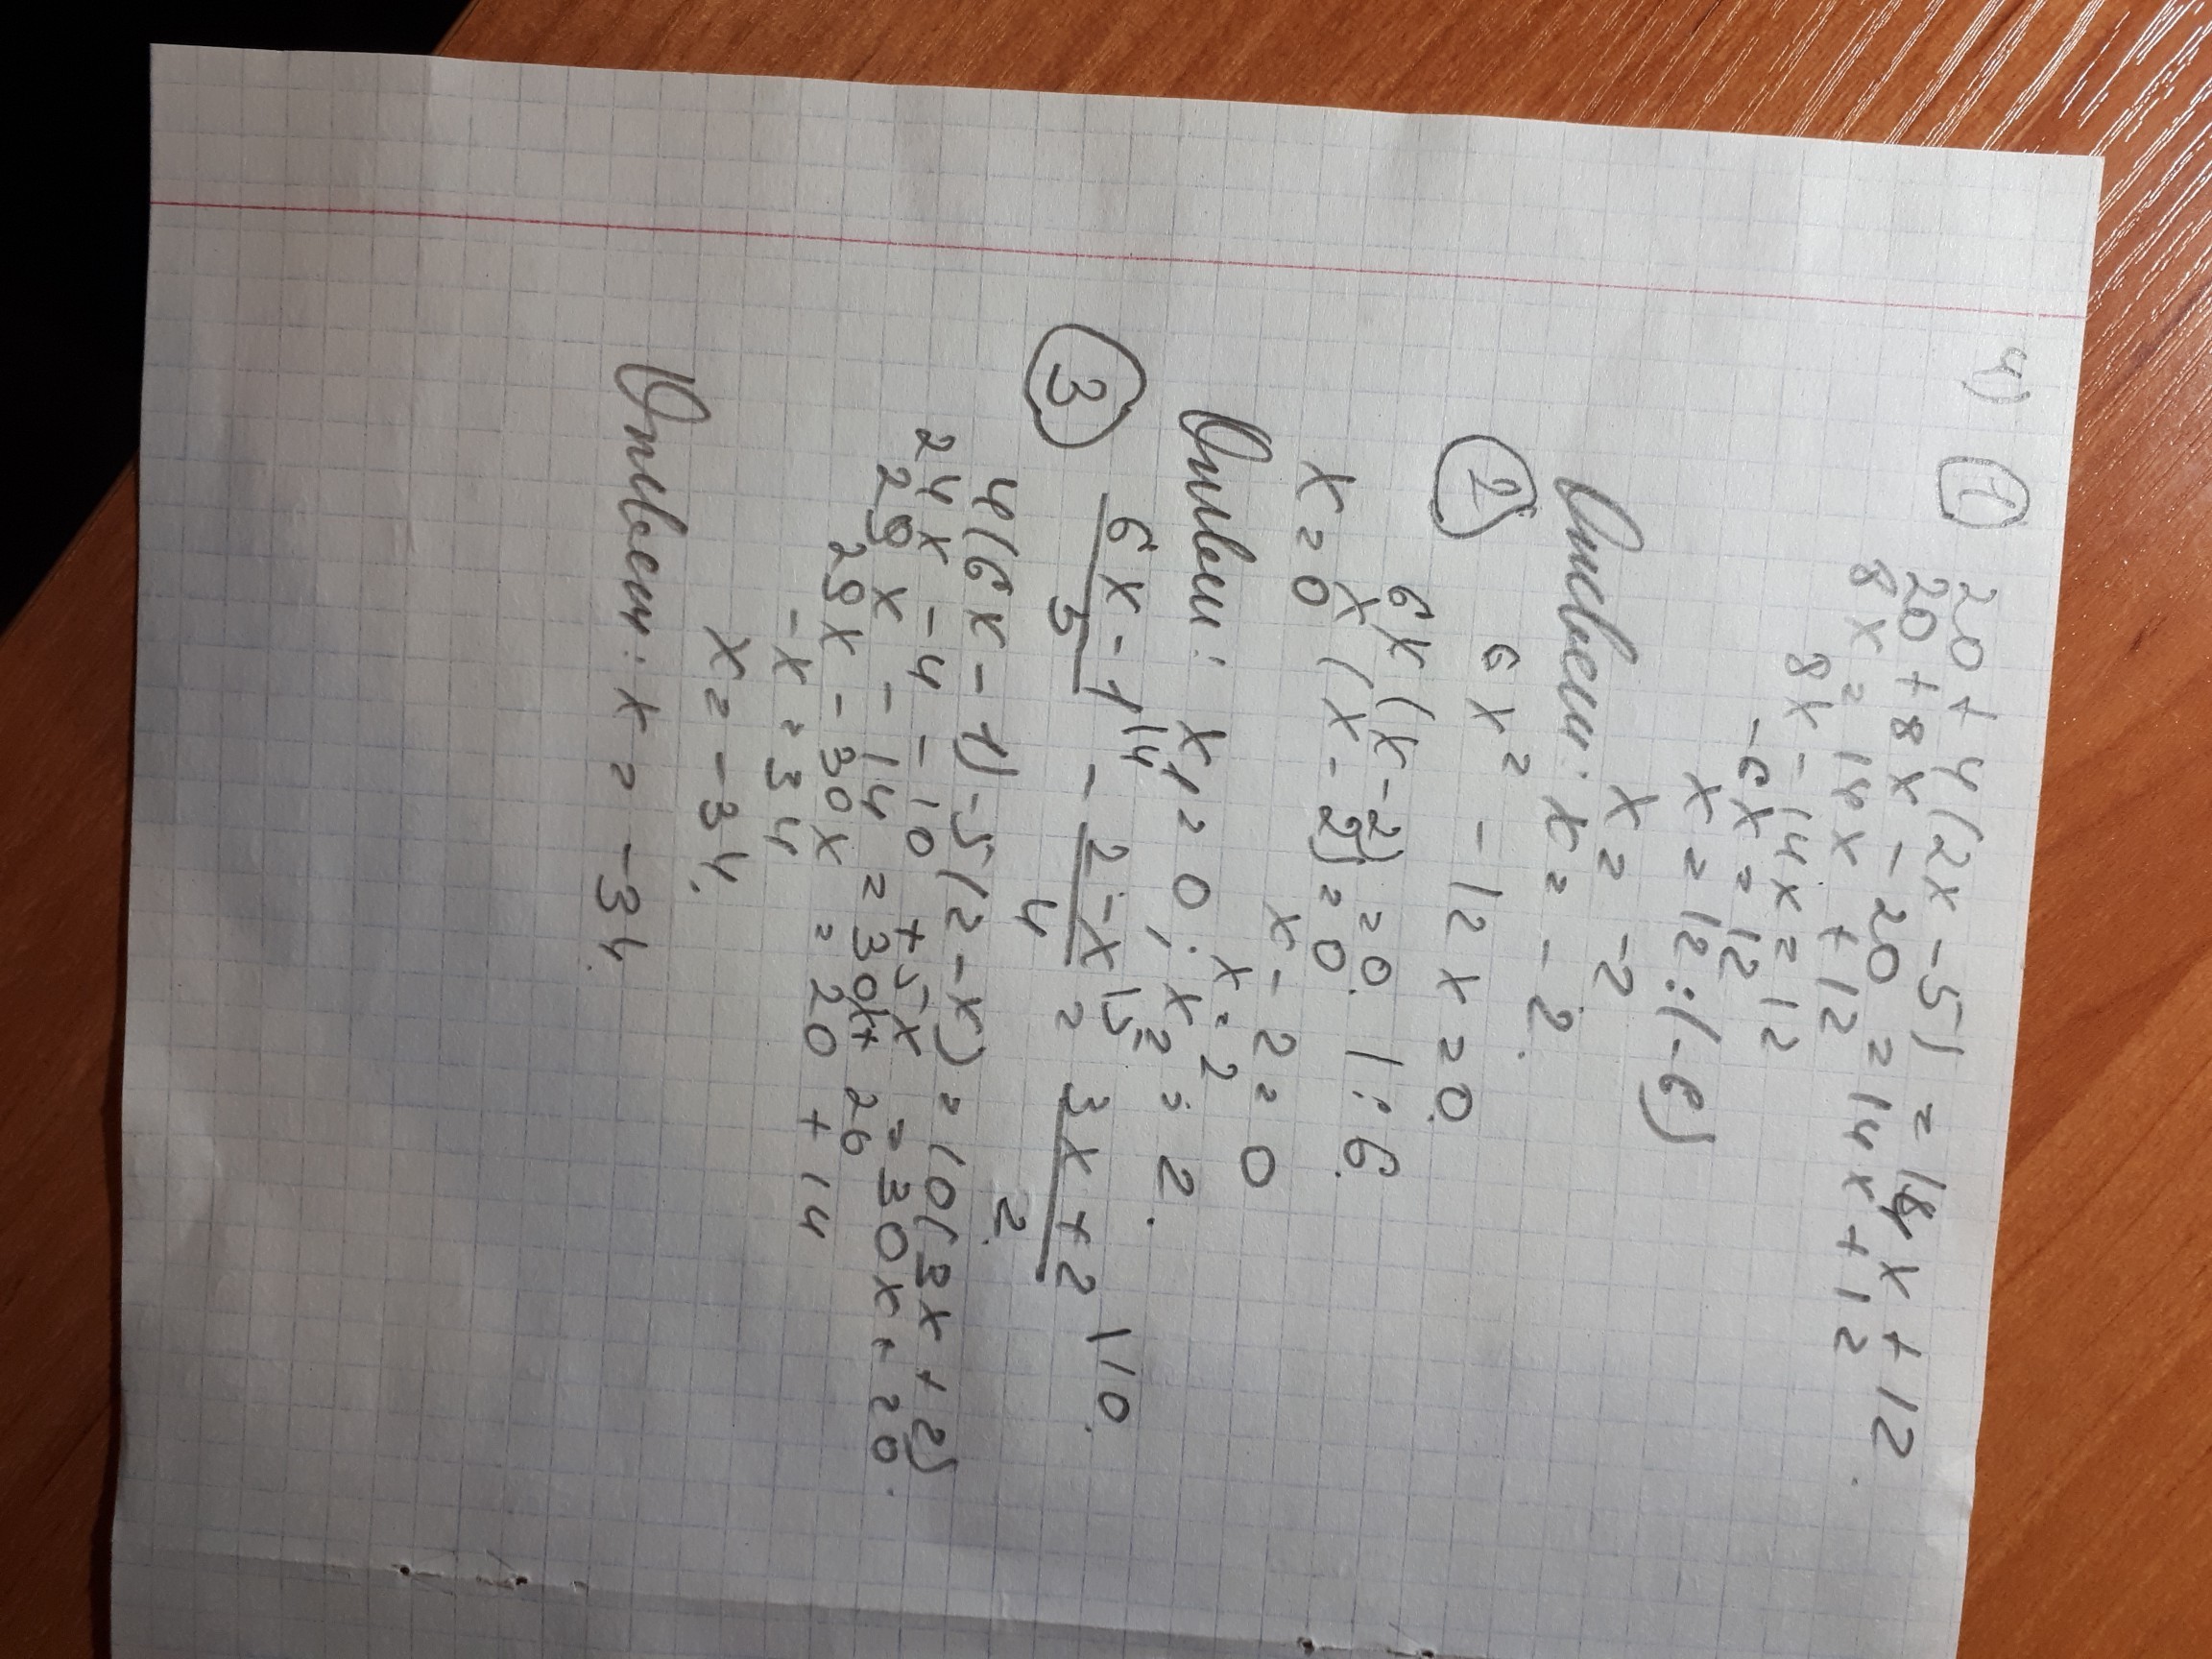 а) ① 20 + 4(2x - 5) = 14x + 12.
20 + 8x - 20 = 14x + 12
8x = 14x + 12
8x - 14x = 12
-6x = 12
x = 12 : (-6)
x = -2
Ответ: x = -2.
② 6x² - 12x = 0.
6x(x - 2) = 0. | : 6.
x(x - 2) = 0.
x = 0 x - 2 = 0
x = 2
Ответ: x₁ = 0; x₂ = 2.
③ 6x - 1 |4 - 2 - x |5 = 3x + 2 |10.
5 4 2.
4(6x - 1) - 5(2 - x) = 10(3x + 2)
24x - 4 - 10 + 5x = 30x + 20.
29x - 14 = 30x + 20
29x - 30x = 20 + 14
-x = 34
x = -34.
Ответ: x = -34.